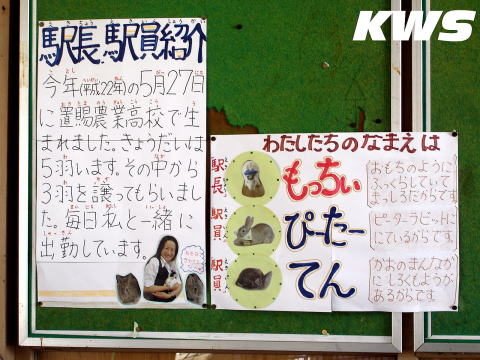 KWS
駅長、駅員紹介
今年(平成22年)の5月27日
に置賜農業高校で生
まれました。きょうだいは
5羽います。その中から
3羽を譲ってもらいまし
た。毎日私と一緒に
出勤しています。
わたしたちのなまえは
駅長
もっちぃ
おもちのように
ふっくらしていて
まっしろだからです。
駅員
ぴーたー
ピーターラビットに
にているからです。
駅員
てん
かおのまんなか
にしろくもようが
あるからです。